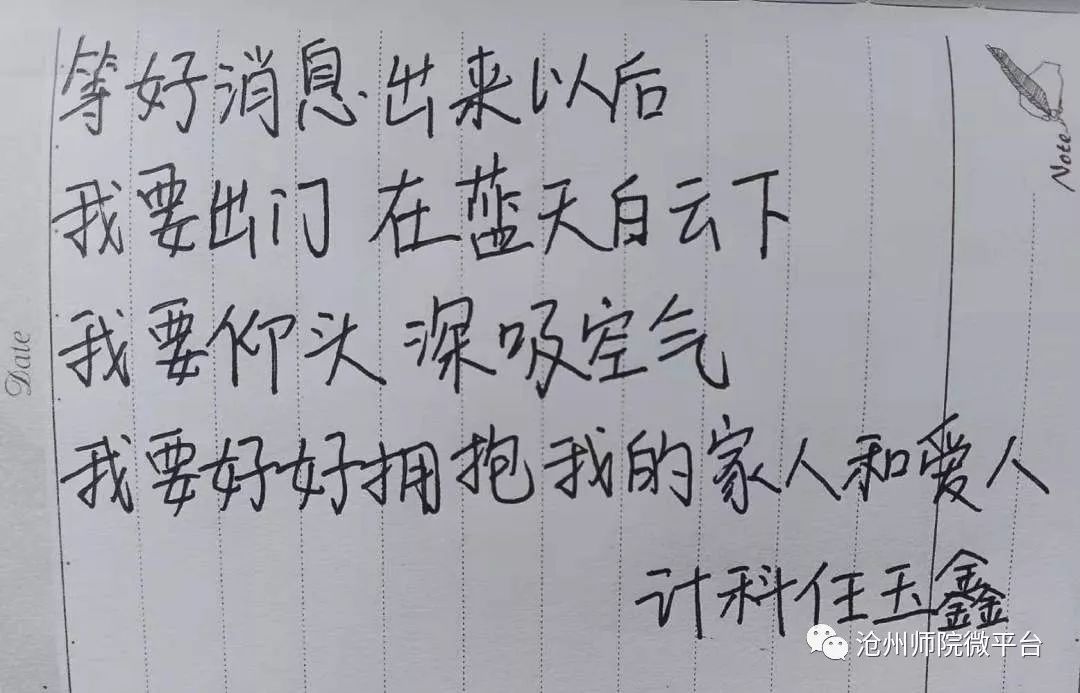 等好消息出来以后
我要出门 在蓝天白云下
我要仰头 深吸空气
我要好好拥抱我的家人和爱人
计科任玉鑫
Note
Date
沧州师院微平台